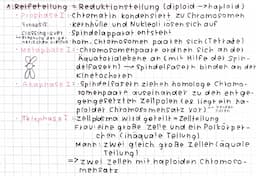 1. Reifeteilung = Reduktionsteilung (diploid → haploid)
• Prophase I: Chromatin kondensiert zu Chromosomen
Kernhülle und Nukleoli lösen sich auf
Spindelapparat entsteht
hom. Chromosomen paaren sich (Tetrade)
• Metaphase I: Chromosomenpaare ordnen sich an der
Äquatorialebene an (mit Hilfe der Spin-
delfasern) → Spindelfasern binden an der
Kinetochoren
• Anaphase I: Spindelfasern ziehen homologe Chromo-
somenpaare auseinander zu den ent-
gegengesetzten Zellpolen (es liegt ein ha-
ploider Chromosomensatz vor)
• Telophase I: Zellplasma wird geteilt = Zellteilung
Frau: eine große Zelle und ein Polkörper-
chen (inäquale Teilung)
Mann: zwei gleich große Zellen (äquale
Teilung)
=> zwei Zellen mit haploidem Chromoso-
mensatz